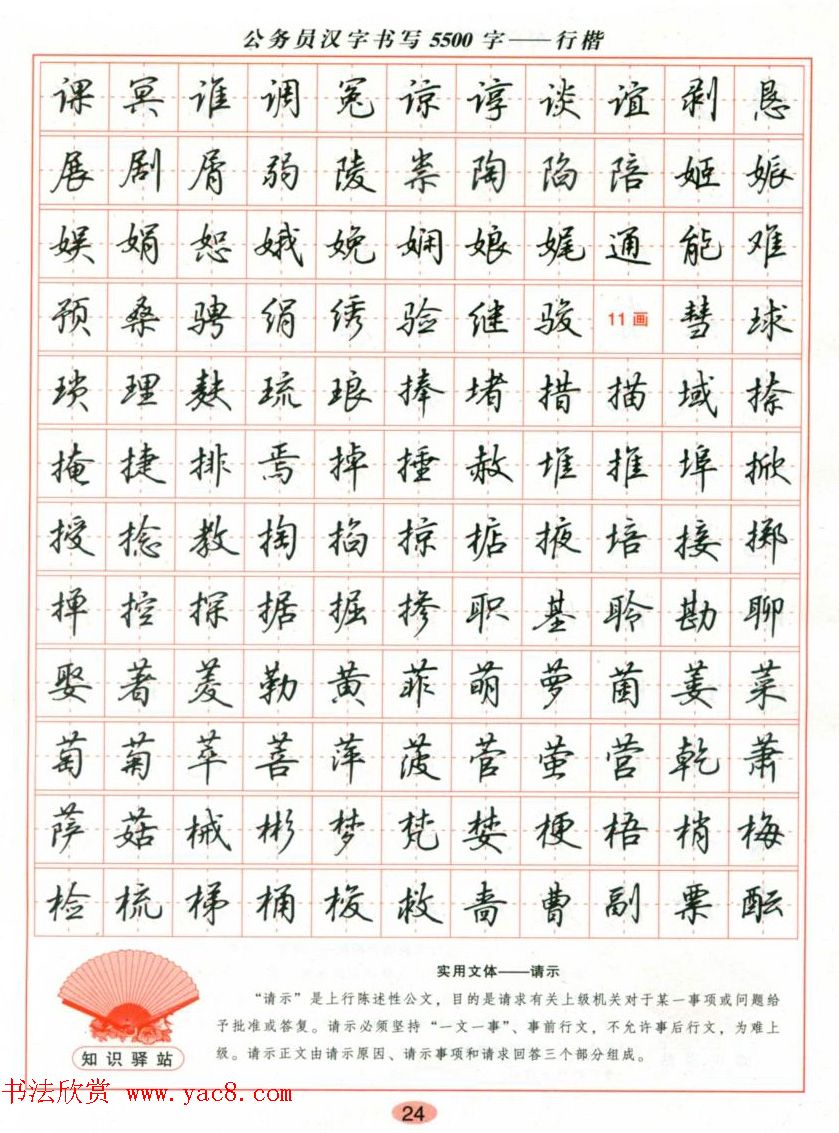 公务员汉字书写5500字——行楷
课冥谁调冤谅谆谈谊剥恳
展剧屑弱陵祟陶陷陪姬娠
娱娟恕娥娩娴娘娓通能难
预桑骋绢绣验继骏11画彗球
琐理麸琉琅捧堵措描域捺
掩捷排焉掉捶赦堆推埠掀
授捻教掏掐掠掂掖培接掷
掸控探据掘掺职基聆勘聊
娶著菱勒黄菲萌萝菌萎菜
萄菊萃菩萍菠营萤营乾萧
萨菇械彬梦梵婪梗梧梢梅
检梳梯桶梭救啬曹副票酝
实用文体——请示
“请示”是上行陈述性公文，目的是请求有关上级机关对于某一事项或问题给
予批准或答复。请示必须坚持“一文一事”、事前行文，不允许事后行文，为难上
级。请示正文由请示原因、请示事项和请求回答三个部分组成。
知识驿站
书法欣赏 www.yac8.com
24